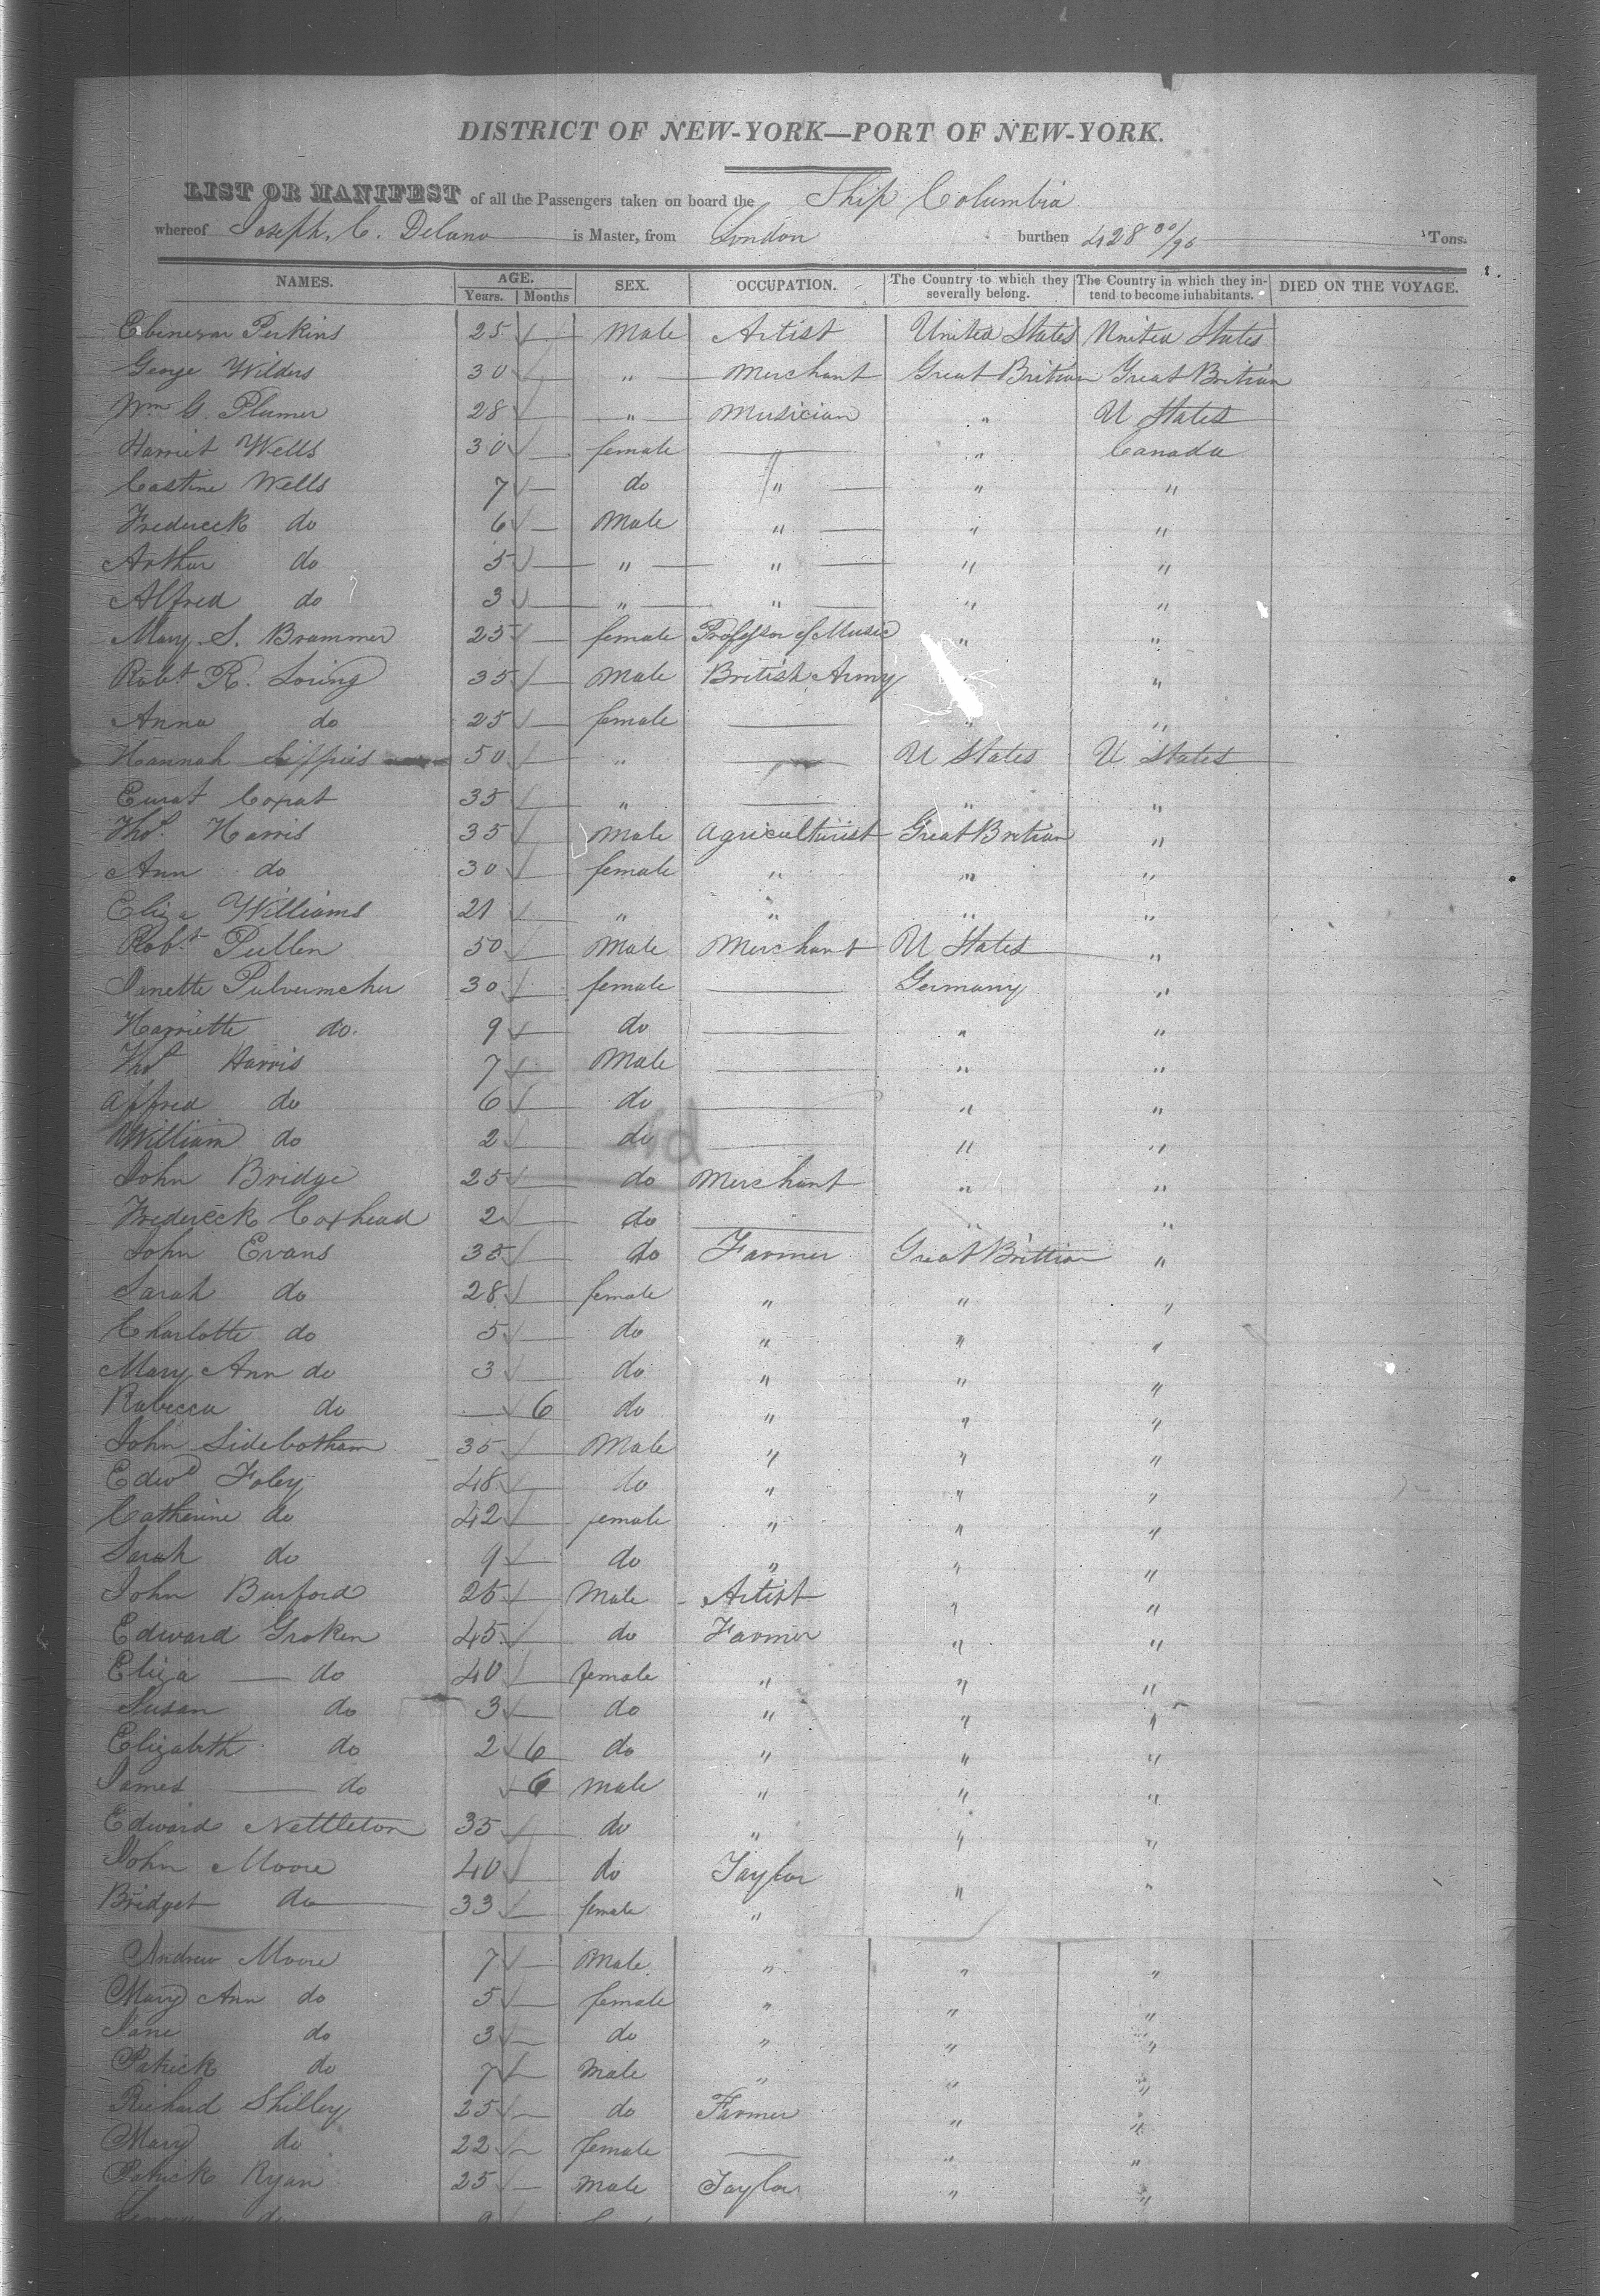 DISTRICT OF NEW-YORK—PORT OF NEW-YORK.
LIST OR MANIFEST of all the Passengers taken on board the Ship Columbia
whereof Joseph. C. Delano is Master, from London burthen 428 Tons.
NAMES. AGE. SEX. OCCUPATION. The Country to which they severally belong. The Country in which they intend to become inhabitants. DIED ON THE VOYAGE.
Years. Months
Ebenezar Perkins 25 Male Artist United States United States
George Wilders 30 " Merchant Great Britian Great Britian
Wm G. Plumer 28 " Musician " U States
Harriet Wells 30 female " " Canada
Castine Wells 7 do " " "
Fredereck do 6 Male " " "
Arthur do 5 " " " "
Alfred do 3 " " " "
Mary. S. Brammer 25 female Professor of Music " "
Robt R. Loring 35 Male British Army "
Anna do 25 female " "
Hannah 50 " U States U. States
35 " " "
Thos. Harris 35 Male Agriculturist Great Britian "
Ann do 30 female " " "
Eliza Williams 21 " " " "
Robt Pullen 50 Male Merchant U States "
Janette Pulvermcher 30 female Germany "
Harriette do. 9 do " "
Thos Harris 7 Male " "
Alfred do 6 do " "
William do 2 do " "
John Bridge 25 do Merchant " "
Fredereck Coxhead 2 do " "
John Evans 35 do Farmer Great Brittian "
Sarah do 28 female " " "
Charlotte do 5 do " " "
Mary Ann do 3 do " " "
Rabecca do 6 do " " "
John Sidebotham 35 Male " " "
Edwd Foley 48 do " " "
Catherine do 42 female " " "
Sarah do 9 do " " "
John Burford 25 Male Artist " "
Edward Groken 45 do Farmer " "
Eliza do 40 female " " "
Susan do 3 do " " "
Elizabeth do 2 6 do " " "
James do 6 Male " " "
Edward Nettleton 35 do " " "
John Moore 40 do Taylor " "
Bridget do 33 female "
Andrew Moore 7 Male " " "
Mary Ann do 5 female " " "
Jane do 3 do " " "
Patrick do 7 Male " " "
Richard Shilley 25 do Farmer " "
Mary do 22 female " "
Patrick Ryan 25 Male Taylor " "